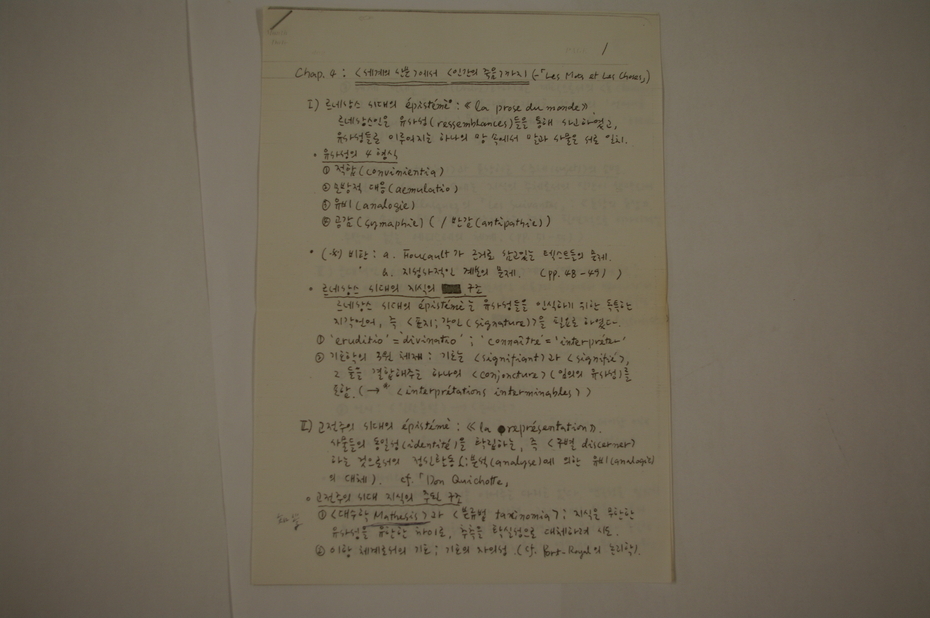 1
Chap. 4 : <세계의 산문>에서 <인간의 죽음>까지 (-「Les Mots et Les Choses」)
I) 르네상스 시대의 épistémè : «la prose du monde»
르네상스인은 유사성(ressemblances)들을 통해 사난하였고,
유사성들로 이루어지는 하나의 망 속에서 말과 사물은 서로 일치.
• 유사성의 4 형식
① 적합(convinientia)
② 모방적 대응(aemulatio)
③ 유비(analogie)
④ 공감(symaphie) ( / 반감(antipathie) )
• 비판 : a. Foucault가 근거로 삼고있는 텍스트들의 문제.
b. 지성사적인 계보의 문제. (pp. 48-49) )
• 르네상스 시대의 지식의 구조
르네상스 시대의 épistémè는 유사성들을 인식하기 위한 독특한
지각언어, 즉 <표지; 각인(signature)>을 필요로 하였다.
① 'eruditio' = 'divinatio' ; 'connaître' = 'interpréter'
② 기호학의 3원 체제 : 기호는 <signifiant>과 <signifié>,
그 둘을 결합해주는 하나의 <conjoncture> (일의의 유사성)를
포함. (→ <interprétations interminables> )
II) 고전주의 시대의 épistémè : «la représentation».
사물들의 동일성(identité)을 확립하는, 즉 <구별 discerner>
하는 것으로서의 정신활동(분석(analyse)에 의한 유비(analogie)
의 대체). cf. 「Don Quichotte」
• 고전주의 시대 지식의 구조
① <대수학 Mathesis>과 <분류법 taxinomia> ; 지식은 무한한
유사성을 유한한 차이로, 추측을 확실성으로 대체하려 시도.
② 이항 체계로서의 기호 ; 기호의 자의성. (cf. Port-Royal의 논리학).